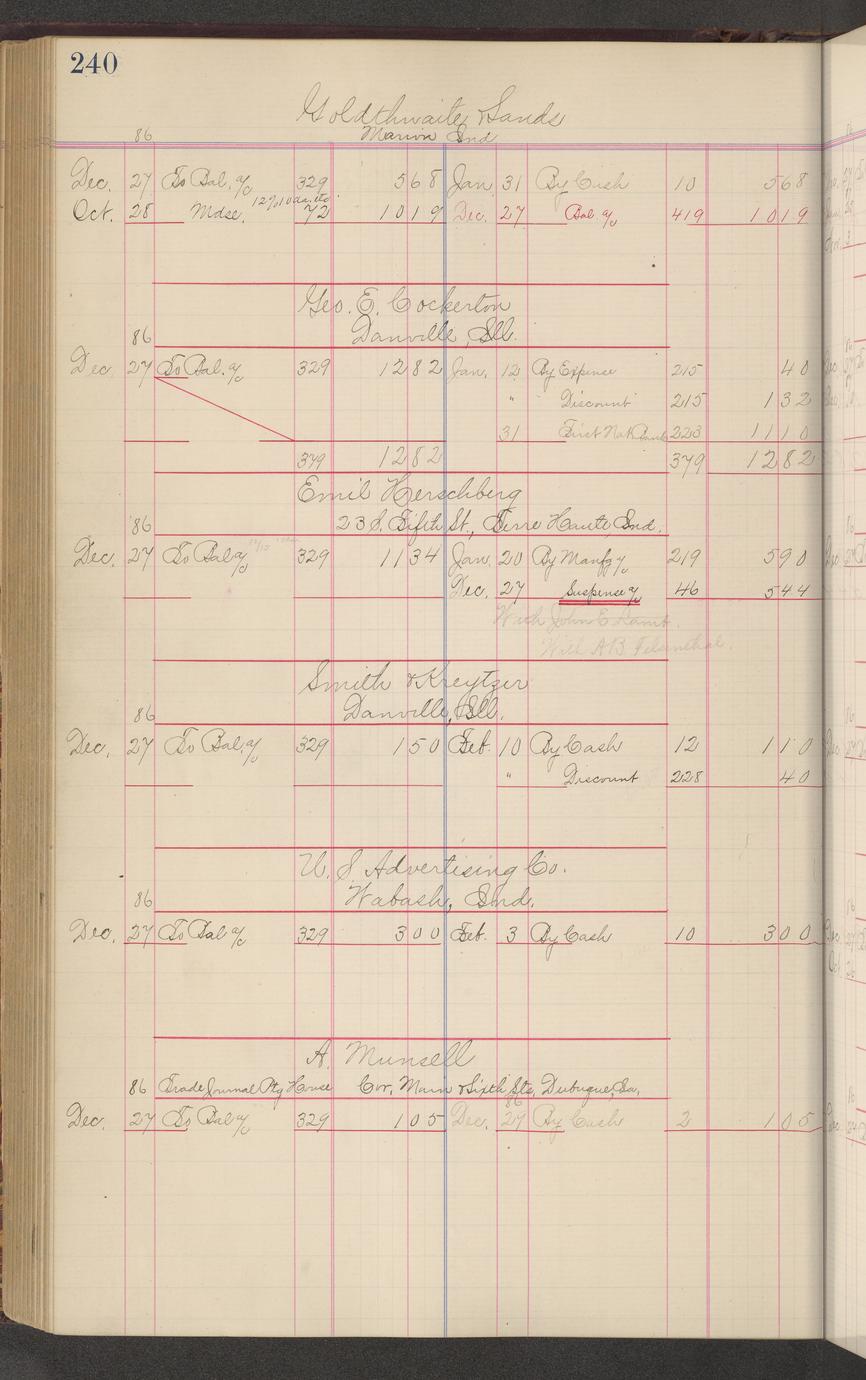 240
Goldthwaite & Sands
86 Marion Ind
Dec. 27 To Bal. a/c 329 568 Jan 31 By Cash 10 568
Oct. 28 Mdse. 72 1019 Dec. 27 Bal. a/c 419 1019
Geo. E. Cockerton
86 Danville, Ill.
Dec. 27 To Bal. a/c 329 1282 Jan. 12 By Expense 215 40
" Discount 215 132
31 First Nat Bank 223 1110
379 1282 379 1282
Emil Herschberg
86 23 S. Fifth St., Terre Haute, Ind.
Dec. 27 To Bal a/c 329 1134 Jan. 20 By Manfg a/c 219 590
Dec. 27 Suspense a/c 46 544
With John E. Lamb.
With A.B. Felsenthal.
Smith & Kreytzer
86 Danville, Ill.
Dec. 27 To Bal. a/c 329 150 Feb. 10 By Cash 12 110
" Discount 228 40
U. S. Advertising Co.
86 Wabash, Ind.
Dec. 27 To Bal a/c 329 300 Feb. 3 By Cash 10 300
A. Munsell
86 Trade Journal Ptg House Cor. Main & Sixth Sts, Dubuque, Ia.
86
Dec. 27 To Bal a/c 329 105 Dec. 27 By Cash 2 105